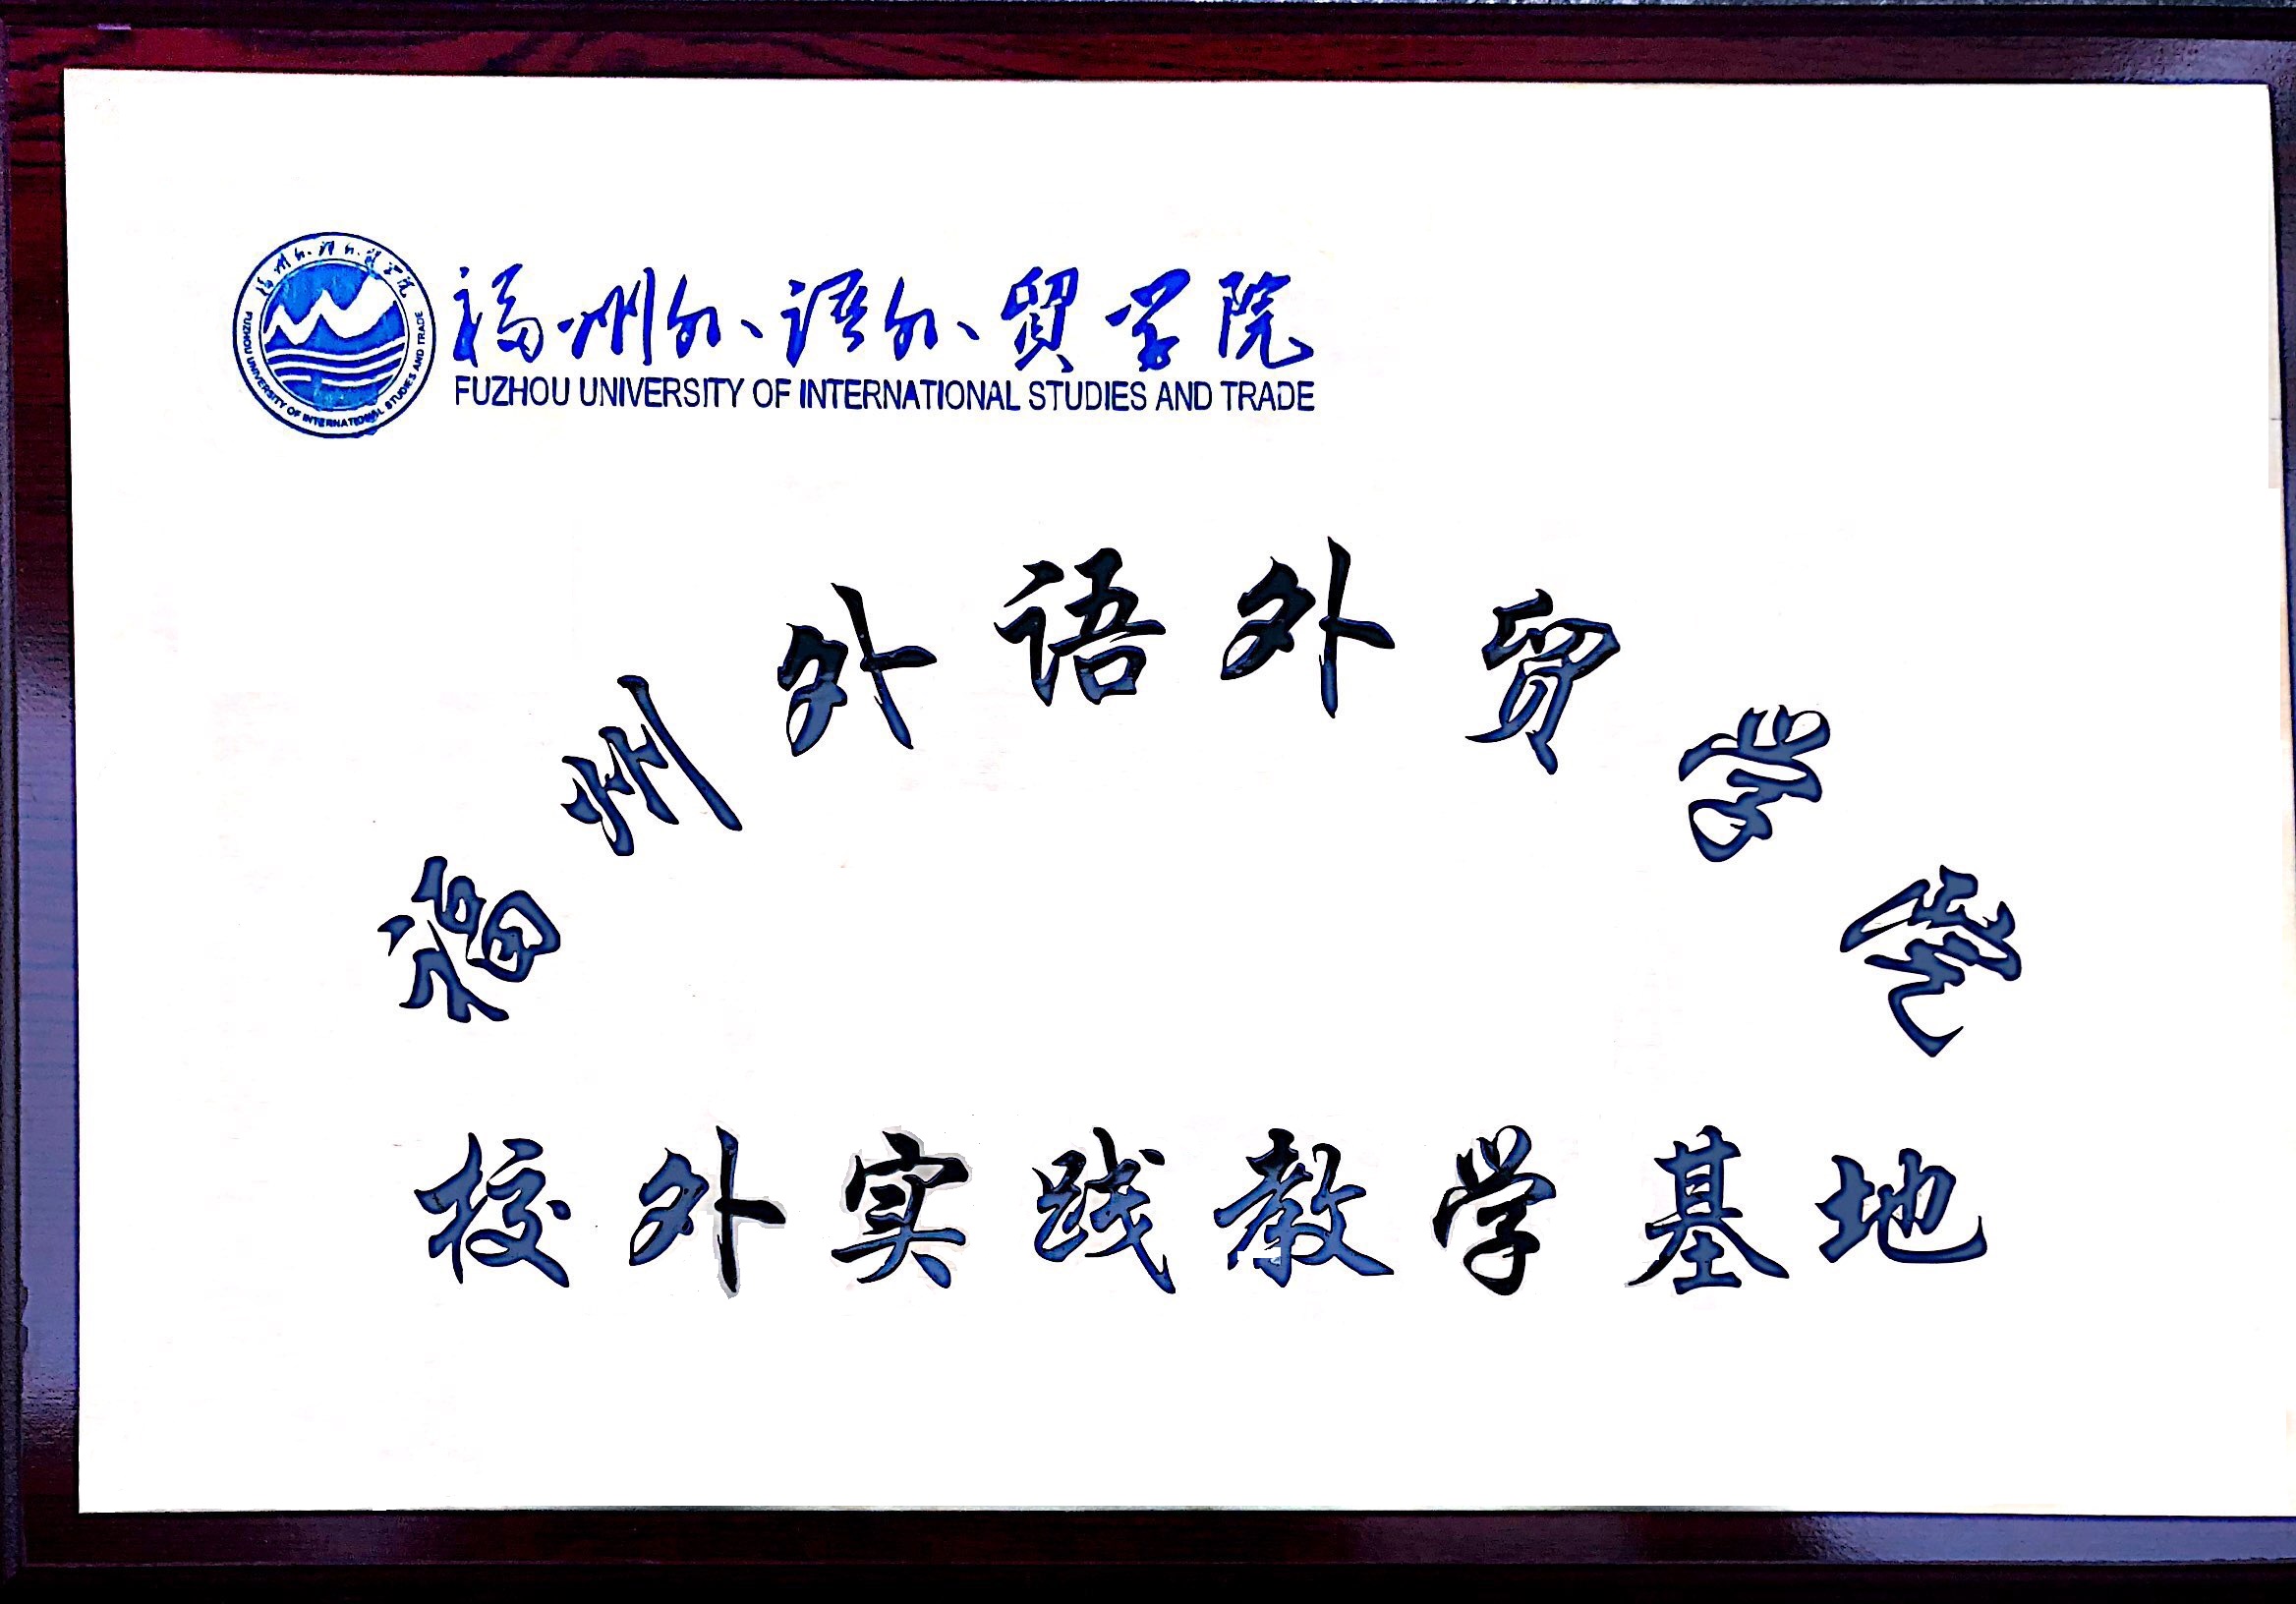 福州外语外贸学院
FUZHOU UNIVERSITY OF INTERNATIONAL STUDIES AND TRADE
福州外语外贸学院
FUZHOU UNIVERSITY OF INTERNATIONAL STUDIES AND TRADE
福州外语外贸学院
校外实践教学基地